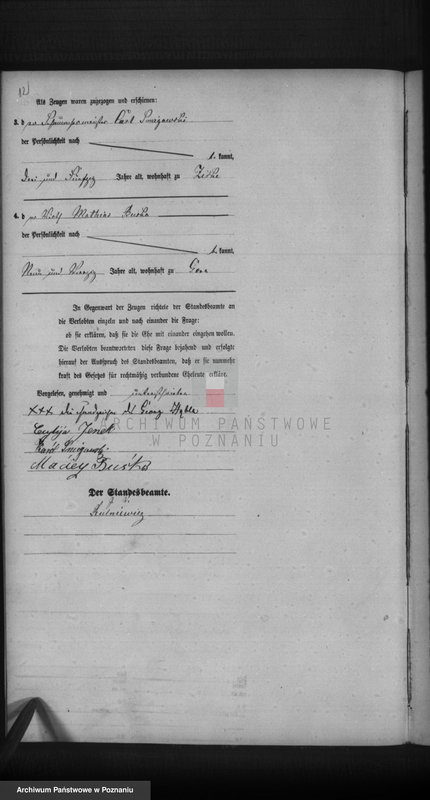 12)
Als Zeugen waren zugezogen und erschienen:
3. d er Carl
der Persönlichkeit nach
kannt,
drei und fünfzig Jahre alt, wohnhaft zu
4. d er Mathias Buska
der Persönlichkeit nach
kannt,
und vierzig Jahre alt, wohnhaft zu
In Gegenwart der Zeugen richtete der Standesbeamte an
die Verlobten einzeln und nach einander die Frage:
ob sie erklären, daß sie die Ehe mit einander eingehen wollen.
Die Verlobten beantworteten diese Frage bejahend und erfolgte
hierauf der Ausspruch des Standesbeamten, daß er sie nunmehr
kraft des Gesetzes für rechtmäßig verbundene Eheleute erkläre.
Vorgelesen, genehmigt und unterschrieben
+++ Handzeichen des Georg
ARCHIWUM PAŃSTWOWE
W POZNANIU
Jenek
Maciej Buśka
Der Standesbeamte.
Archiwum Państwowe w Poznaniu